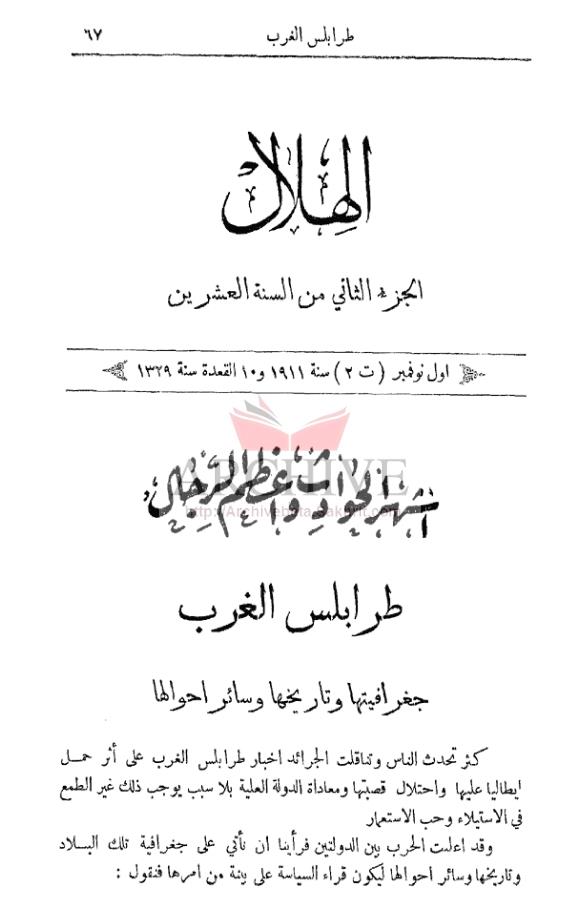 طرابلس الغرب ٦٧
الهلال
الجزء الثاني من السنة العشرين
اول نوفمبر ( ت ٢ ) سنة ١٩١١ و١٠ القعدة سنة ١٣٢٩
ARCHIVE
اشهر الحوادث واعظم الرجال
طرابلس الغرب
جغرافيتها وتاريخها وسائر احوالها
كثر تحدث الناس وتناقلت الجرائد اخبار طرابلس الغرب على أثر حمل
ايطاليا عليها واحتلال قصبتها ومعاداة الدولة العلية بلا سبب يوجب ذلك غير الطمع
في الاستيلاء وحب الاستعمار
وقد اعلنت الحرب بين الدولتين فرأينا ان نأتي على جغرافية تلك البلاد
وتاريخها وسائر احوالها ليكون قراء السياسة على بينة من امرها فنقول :